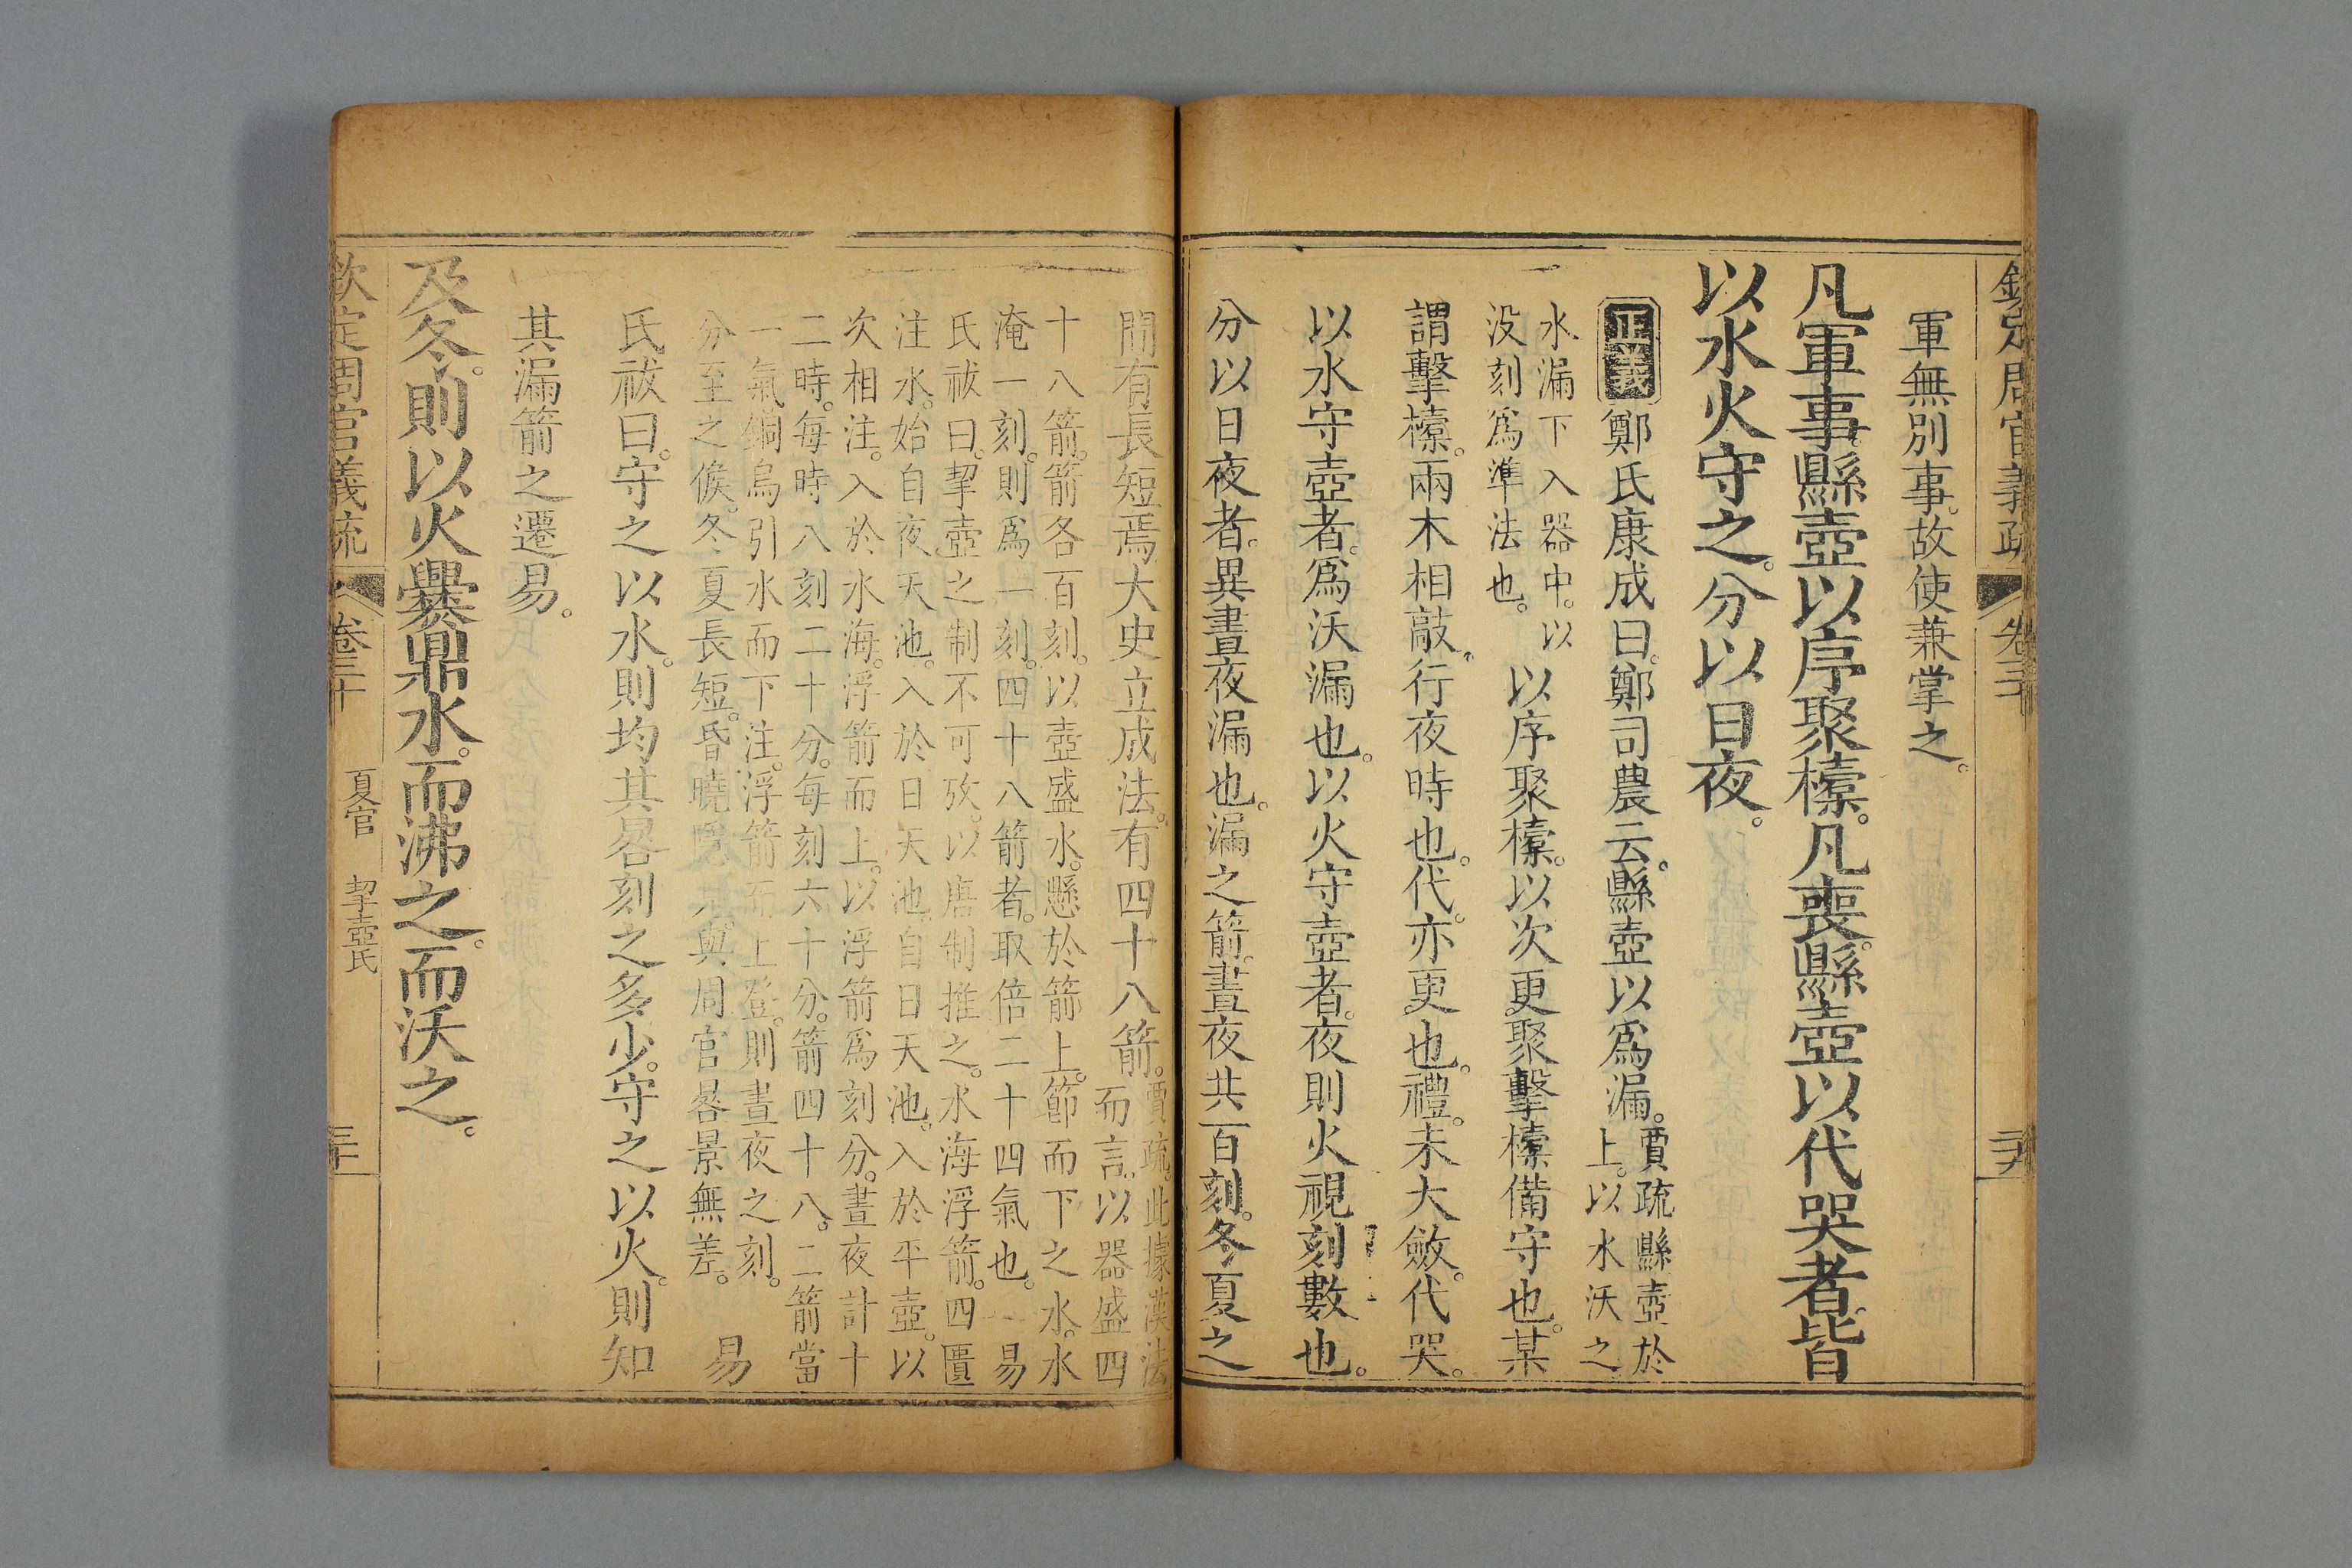 欽定周官義疏 卷三十
軍無別事。故使兼掌之。
凡軍事。縣壺以序聚㯓。凡喪。縣壺以代哭者。皆
以水火守之。分以日夜。
正義 鄭氏康成曰。鄭司農云。縣壺以爲漏。賈疏縣壺於
上。以水沃之。
水漏下入器中。以
没刻爲準法也。以序聚㯓。以次更聚擊㯓備守也。某
謂擊㯓。兩木相敲。行夜時也。代。亦更也。禮。未大斂。代哭。
以水守壺者。爲沃漏也。以火守壺者。夜則火視刻數也。
分以日夜者。異晝夜漏也。漏之箭。晝夜共百刻。冬夏之
間有長短焉。大史立成法。有四十八箭。賈疏。此據漢法
而言。以器盛四
十八箭。箭各百刻。以壺盛水。懸於箭上。節而下之水。水
淹一刻。則爲一刻。四十八箭者。取倍二十四氣也。 易
氏祓曰。挈壺之制不可攷。以唐制推之。水海浮箭。四匱
注水。始自夜天池。入於日天池。自日天池。入於平壺。以
次相注。入於水海。浮箭而上。以浮箭爲刻分。晝夜計十
二時。每時八刻二十分。每刻六十分。箭四十八。二箭當
一氣。銅烏引水而下注。浮箭而上登。則晝夜之刻。
分至之候。冬夏長短。昏曉隱見。與周官晷景無差。 易
氏祓曰。守之以水。則均其晷刻之多少。守之以火。則知
其漏箭之遷易。
及冬。則以火爨鼎水。而沸之。而沃之。
欽定周官義疏 卷三十 夏官 挈壺氏 三十